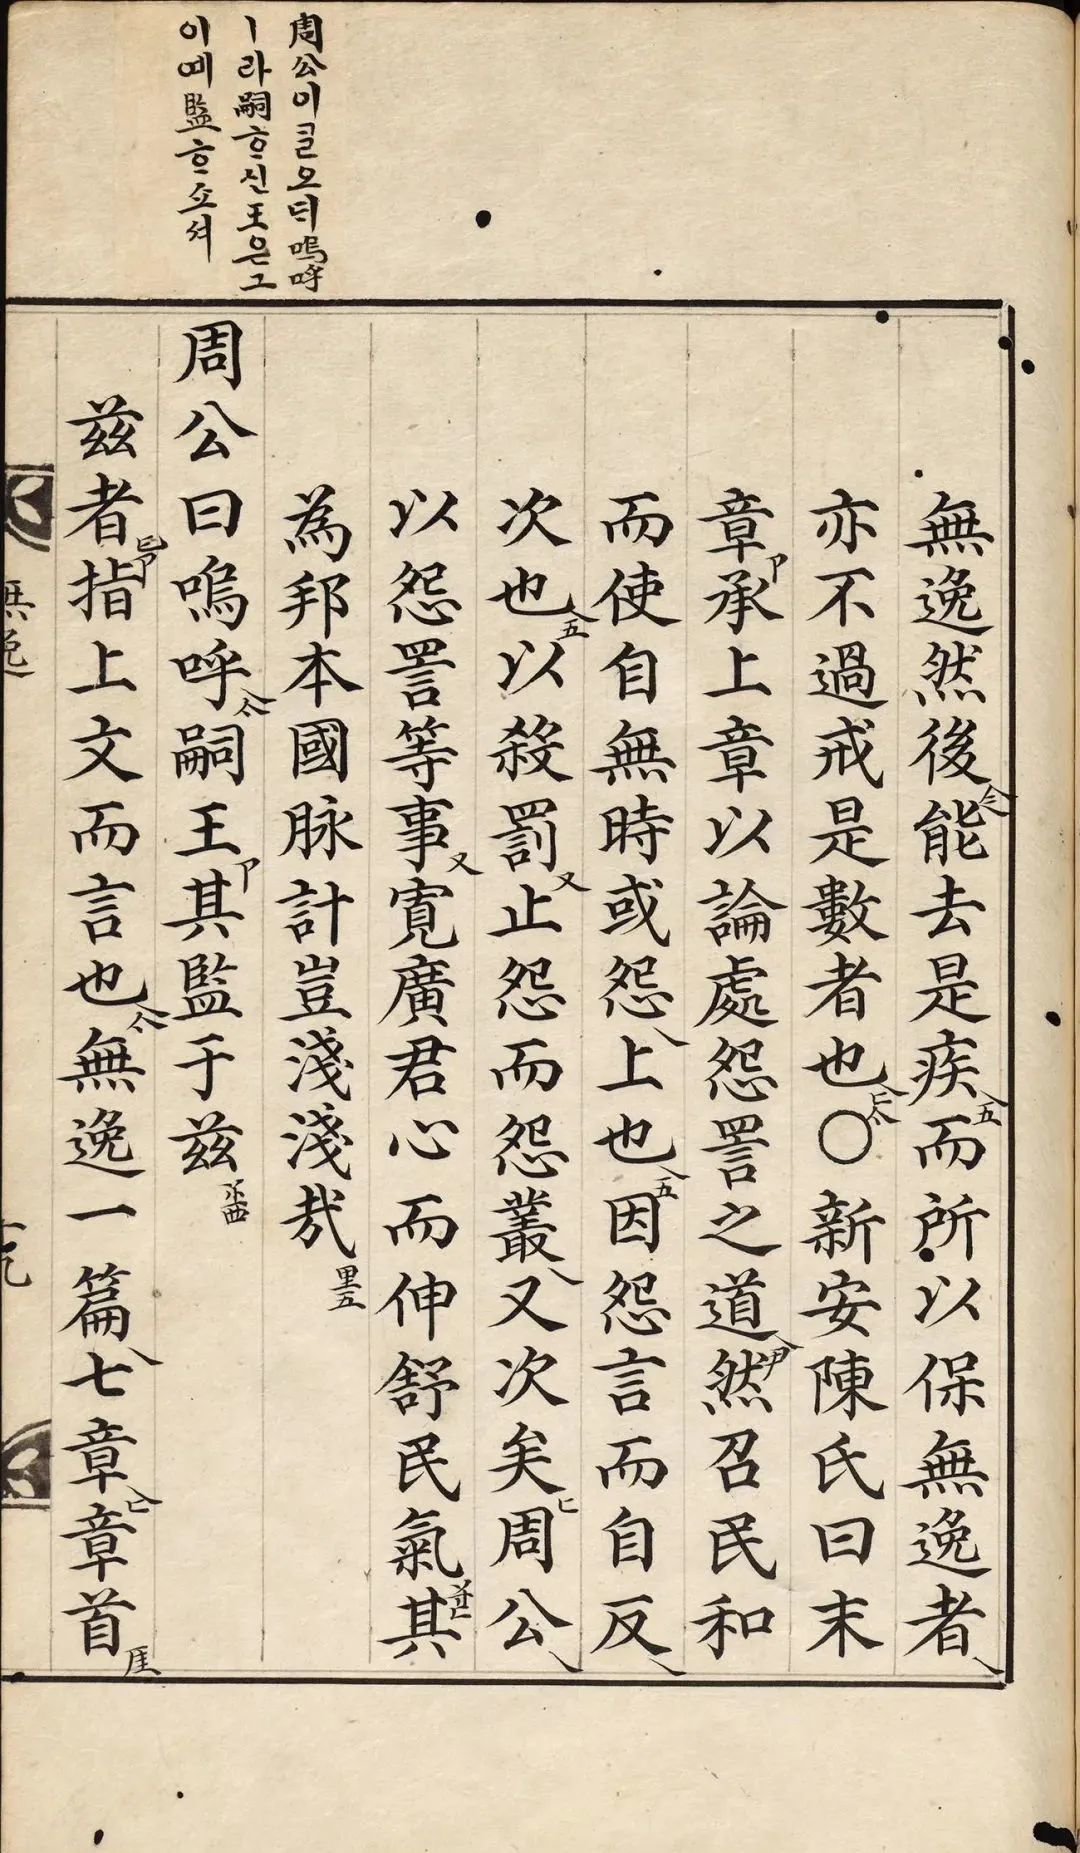 周公이 ᄀᆞᆯ오ᄃᆡ 嗚呼
ㅣ라 嗣ᄒᆞ신 王은 그
이예 監ᄒᆞ쇼셔
無逸然後能去是疾而所以保無逸者
亦不過戒是數者也〇新安陳氏曰末
章承上章以論處怨詈之道然召民和
而使自無時或怨上也因怨言而自反
次也以殺罰止怨而怨叢又次矣周公
以怨詈等事寬廣君心而伸舒民氣其
為邦本國脉計豈淺淺哉
周公曰嗚呼嗣王其監于茲
茲者指上文而言也無逸一篇七章章首
無逸